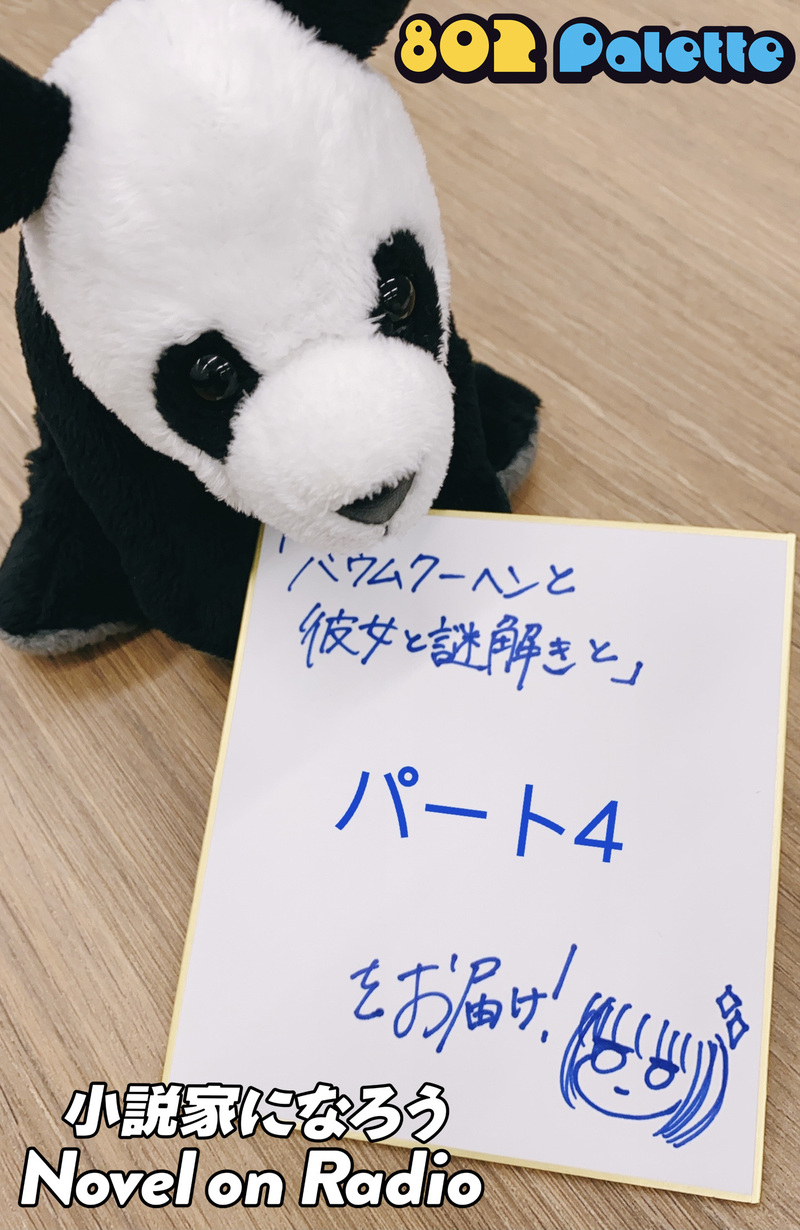 802 Palette
「バウムクーヘンと
彼女と謎解きと」
パート4
をお届け!
小説家になろう
Novel on Radio